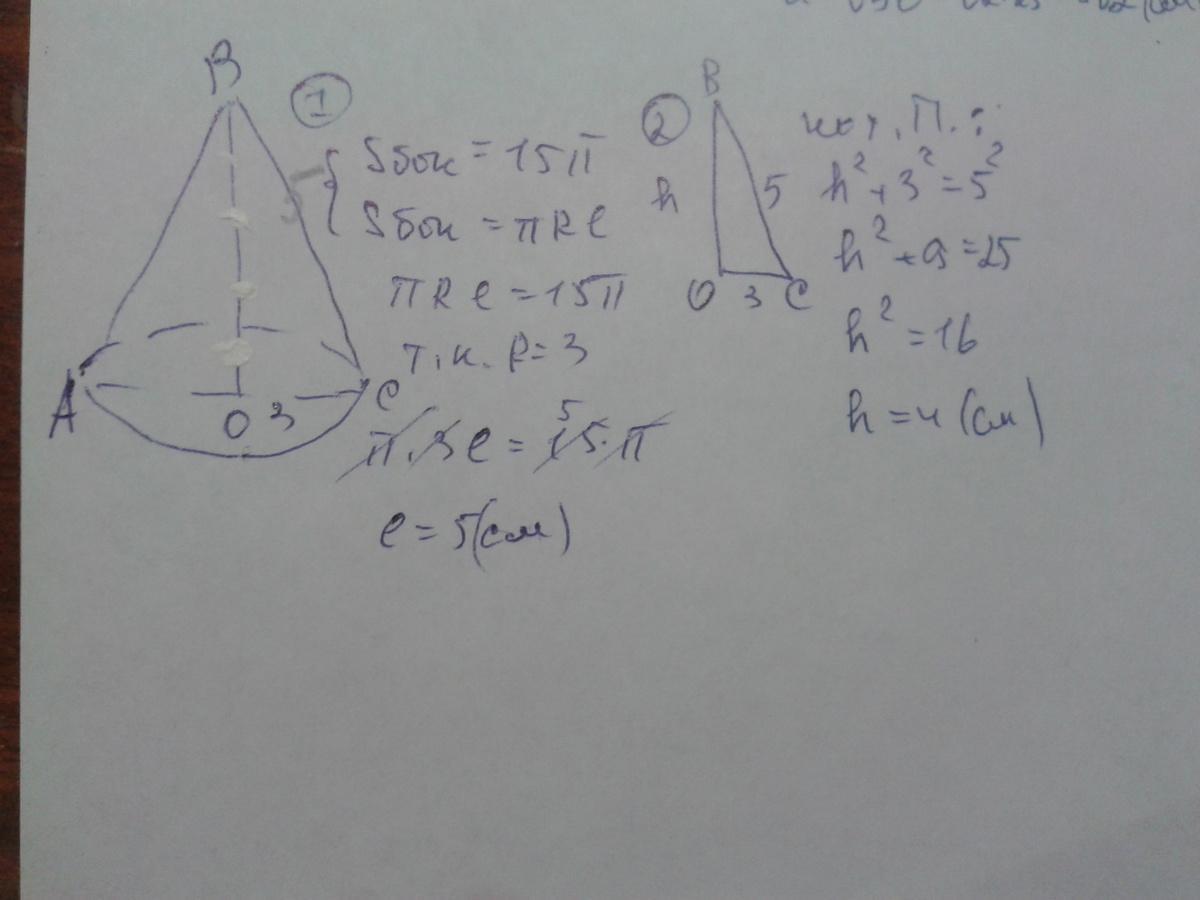 B
①
Sбок = 15π
Sбок = πRl
πRl = 15π
т.к. R = 3
π·3l = 15·π
5
l = 5(см)
A
O 3
C
②
B
h
5
O 3 C
П.:
h² + 3² = 5²
h² + 9 = 25
h² = 16
h = 4 (см)